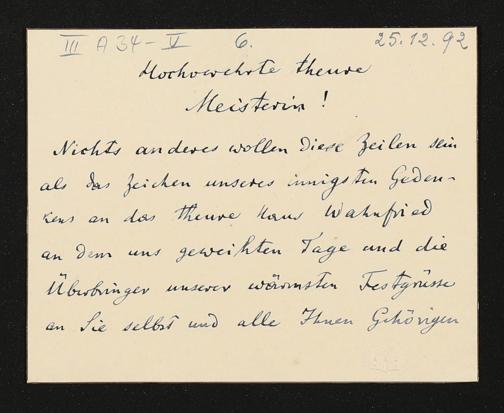 III A 34 - V 6. 25.12.92
Hochverehrte theure
Meisterin!
Nichts anderes wollen diese Zeilen sein
als das Zeichen unseres innigsten Geden-
kens an das theure Haus Wahnfried
an dem uns geweihten Tage und die
Überbringer unserer wärmsten Festgrüsse
an Sie selbst und alle Ihnen Gehörigen